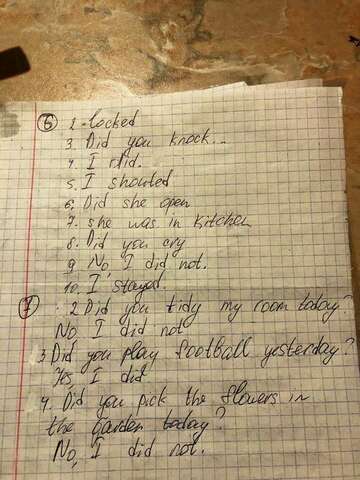 6 2. locked
3 Did you knock...
4. I did.
5. I shouted
6. Did she open
7. she was in kitchen
8. Did you cry
9. No, I did not.
10. I stayed.
7 2. Did you tidy my room today?
No I did not
3. Did you play football yesterday?
Yes, I did
4. Did you pick the flowers in
the garden today?
No, I did not.